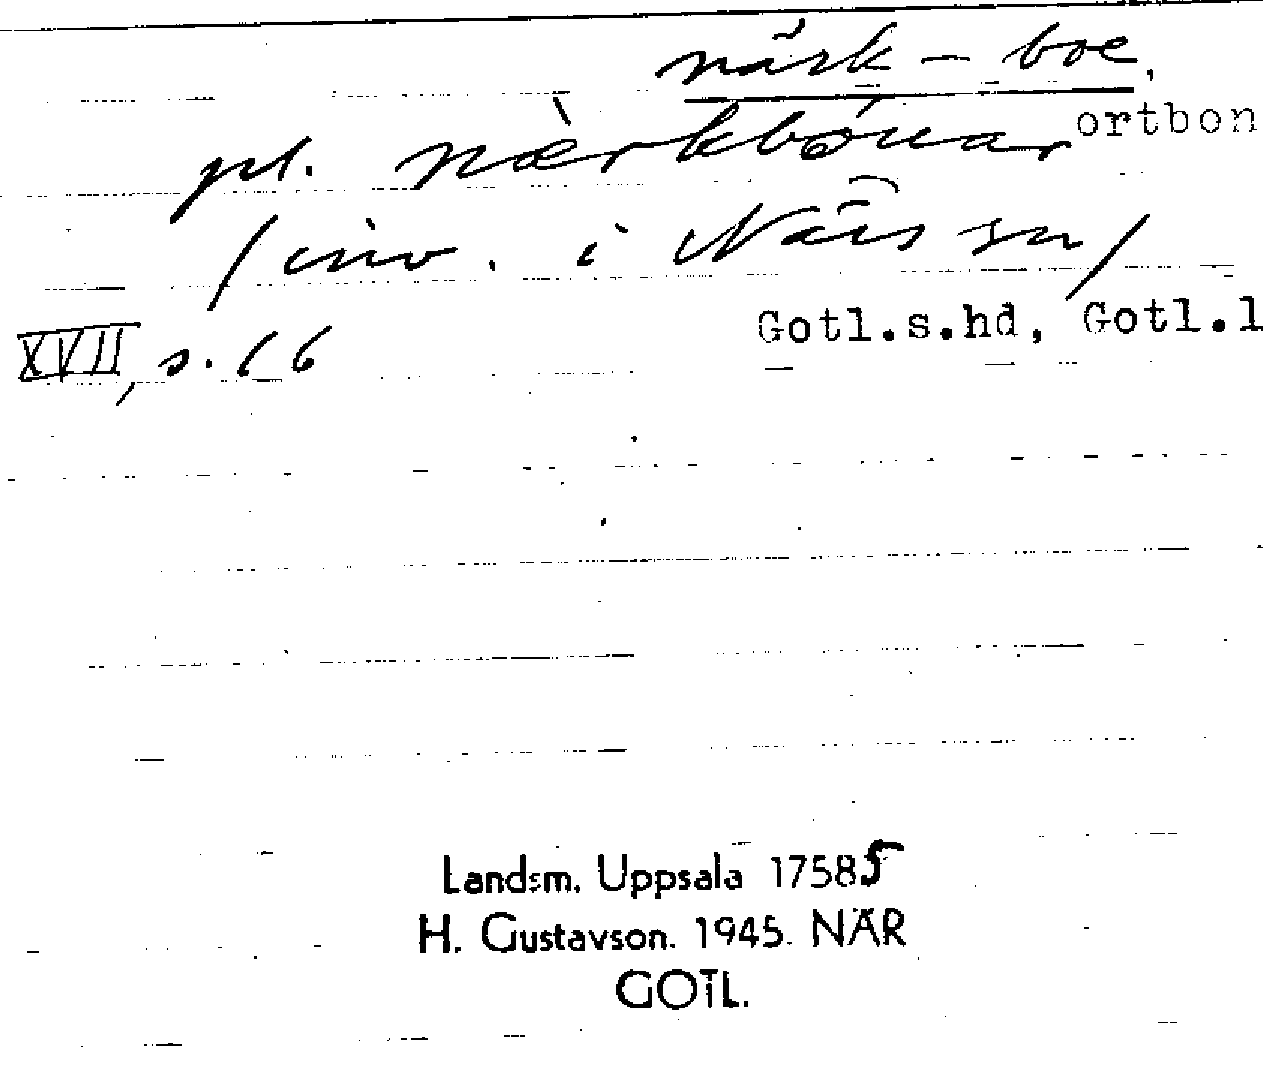 närk-boe,
ortbon
pl. nærkbóuar
/inv. i När sn/
Gotl.s.hd, Gotl.l
XVII, s. 16
Landsm. Uppsala 17585
H. Gustavson. 1945. NÄR
GOTL.